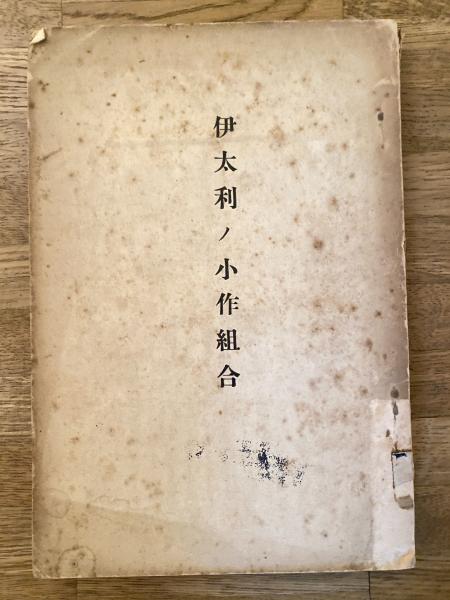 伊太利ノ小作組合